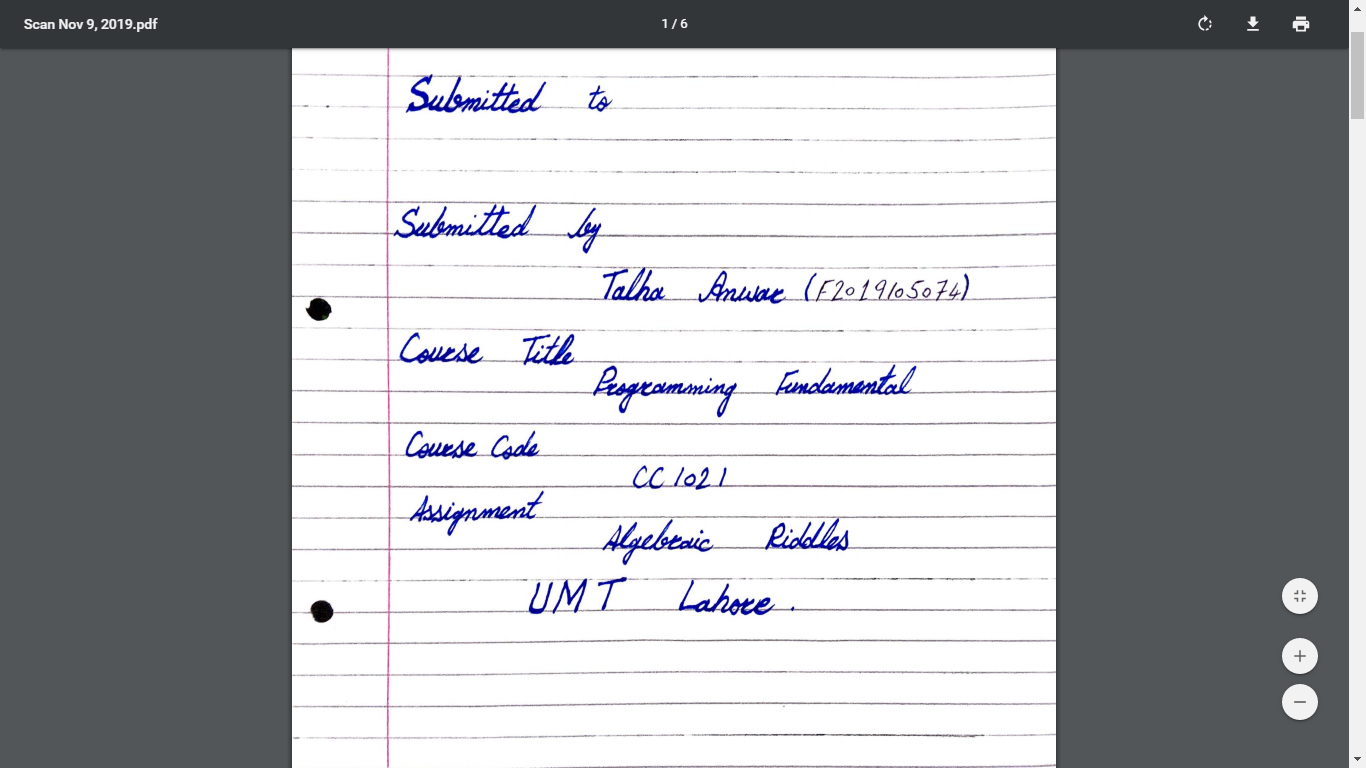 Scan Nov 9, 2019.pdf
1 / 6
Submitted to
Submitted by
Talha Anwar (F2019105074)
Course Title
Programming Fundamental
Course Code
CC1021
Assignment
Algebraic Riddles
UMT Lahore.